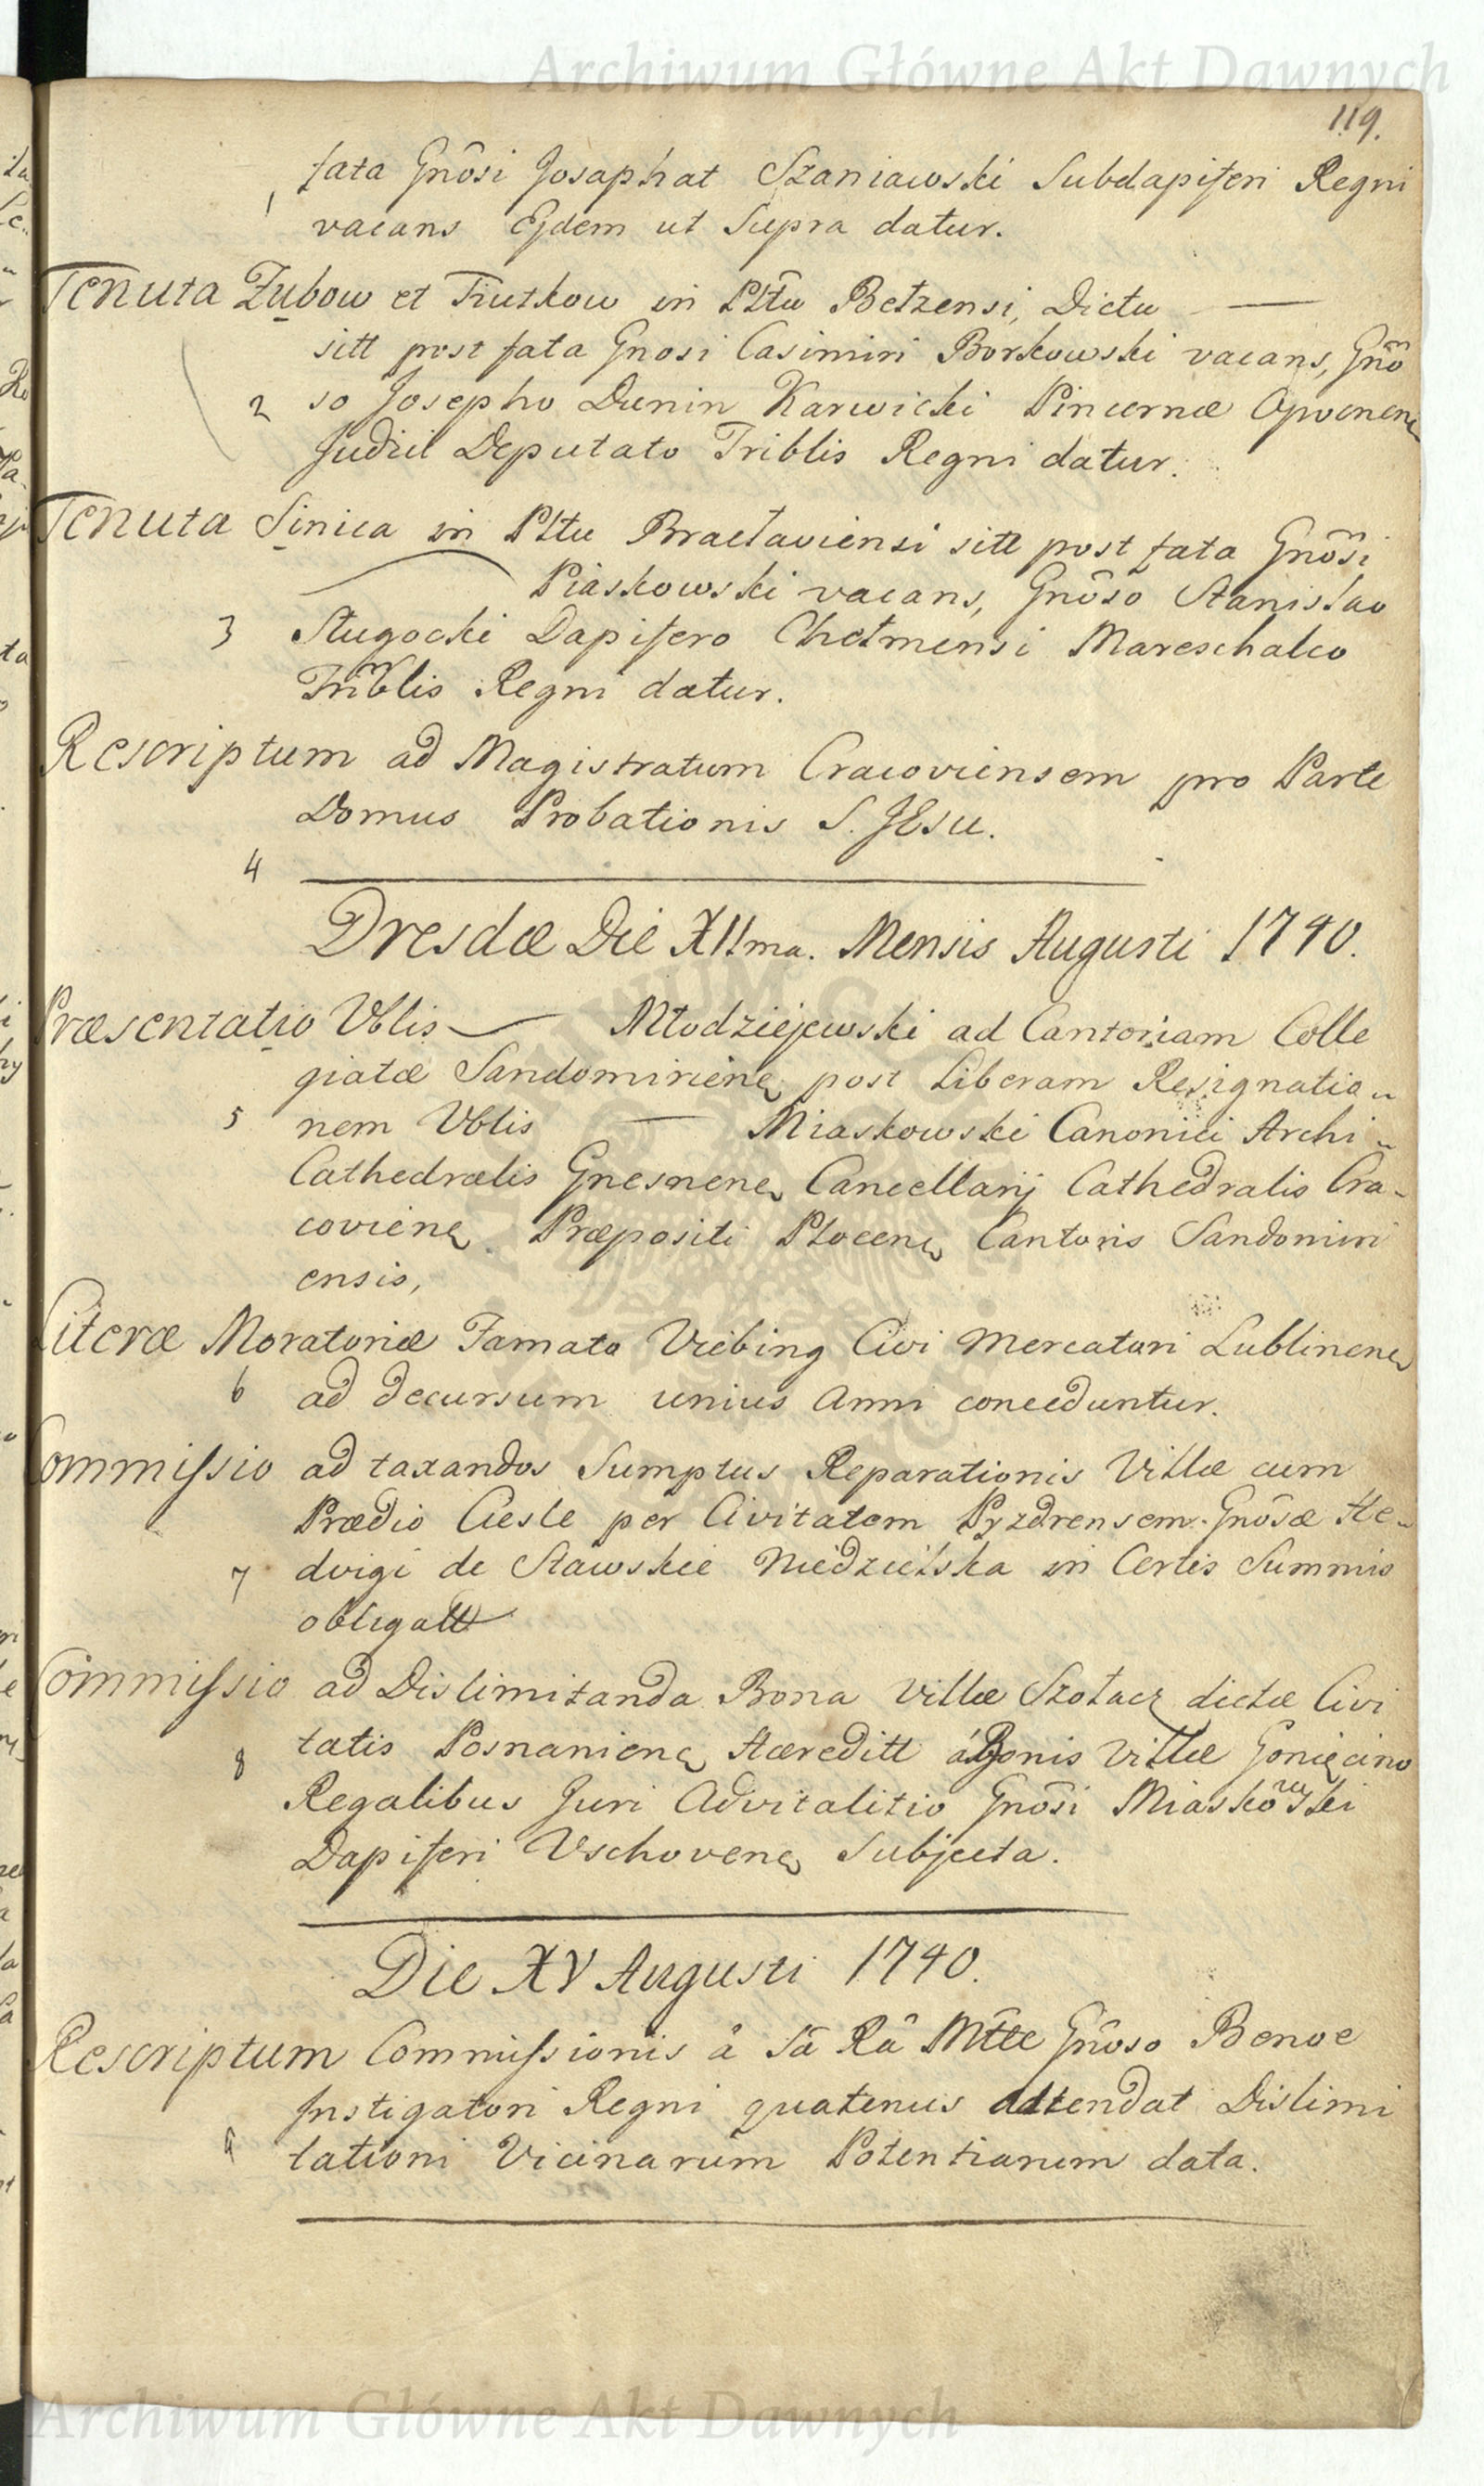 Archiwum Główne Akt Dawnych
119.
fata Gnôsi Josaphat Szaniawski Subdapiferi Regni
1 vacans Ejdem ut Supra datur.
Tenuta Zubow et Trutkow in Pltû Bełzensi, Dictu —
sitt post fata Gnosi Casimiri Borkowski vacans, Gnô
2 so Josepho Dunin Karwicki Pincernæ Opocnen
Judici Deputato Triblis Regni datur.
Tenuta Sinica in Pltu Bracłaviensi sitt post fata Gnôsi
Piaskowski vacans, Gnôso Stanislao
3 Sługocki Dapifero Chełmensi Mareschalco
Triblis Regni datur.
Rescriptum ad Magistratum Cracoviensem pro Parte
Domus Probationis S. JEsu.
4
Dresdæ Die XIIma. Mensis Augusti 1740.
Præsentatio Vblis — Młodziejewski ad Cantoriam Colle
giatæ Sandomiriene post Liberam Resignatio
5 nem Vblis — Miaskowski Canonici Archi
Cathedralis Gnesnene Cancellarij Cathedralis Cra-
coviene Præpositi Płocene Cantoris Sandomiri
ensis,
Literæ Moratoriæ Famato Viebing Civi Mercatori Lublinene
6 ad decursum unius Anni conceduntur.
Commissio ad taxandos Sumptus Reparationis Villæ cum
Prædio Ciesle per Civitatem Pyzdrensem Gnôsæ He-
7 dvigi de Stawskie Niedzielska in Certis Summis
obligatt
Commissio ad Dislimitanda Bona Villæ Szołacz dictæ Civi
8 tatis Posnaniene Hæreditt á Bonis Villæ Gonięcino
Regalibus Juri Advitalitio Gnôsi Miaskowski
Dapiferi Vschovene Subjecta.
Die XV Augusti 1740.
Rescriptum Commissionis â Sâ Râ Mtte Gnôso Benoe
Instigatori Regni quatenus attendat Dislimi
9 tationi Vicinarum Potentiarum data.
Archiwum Główne Akt Dawnych